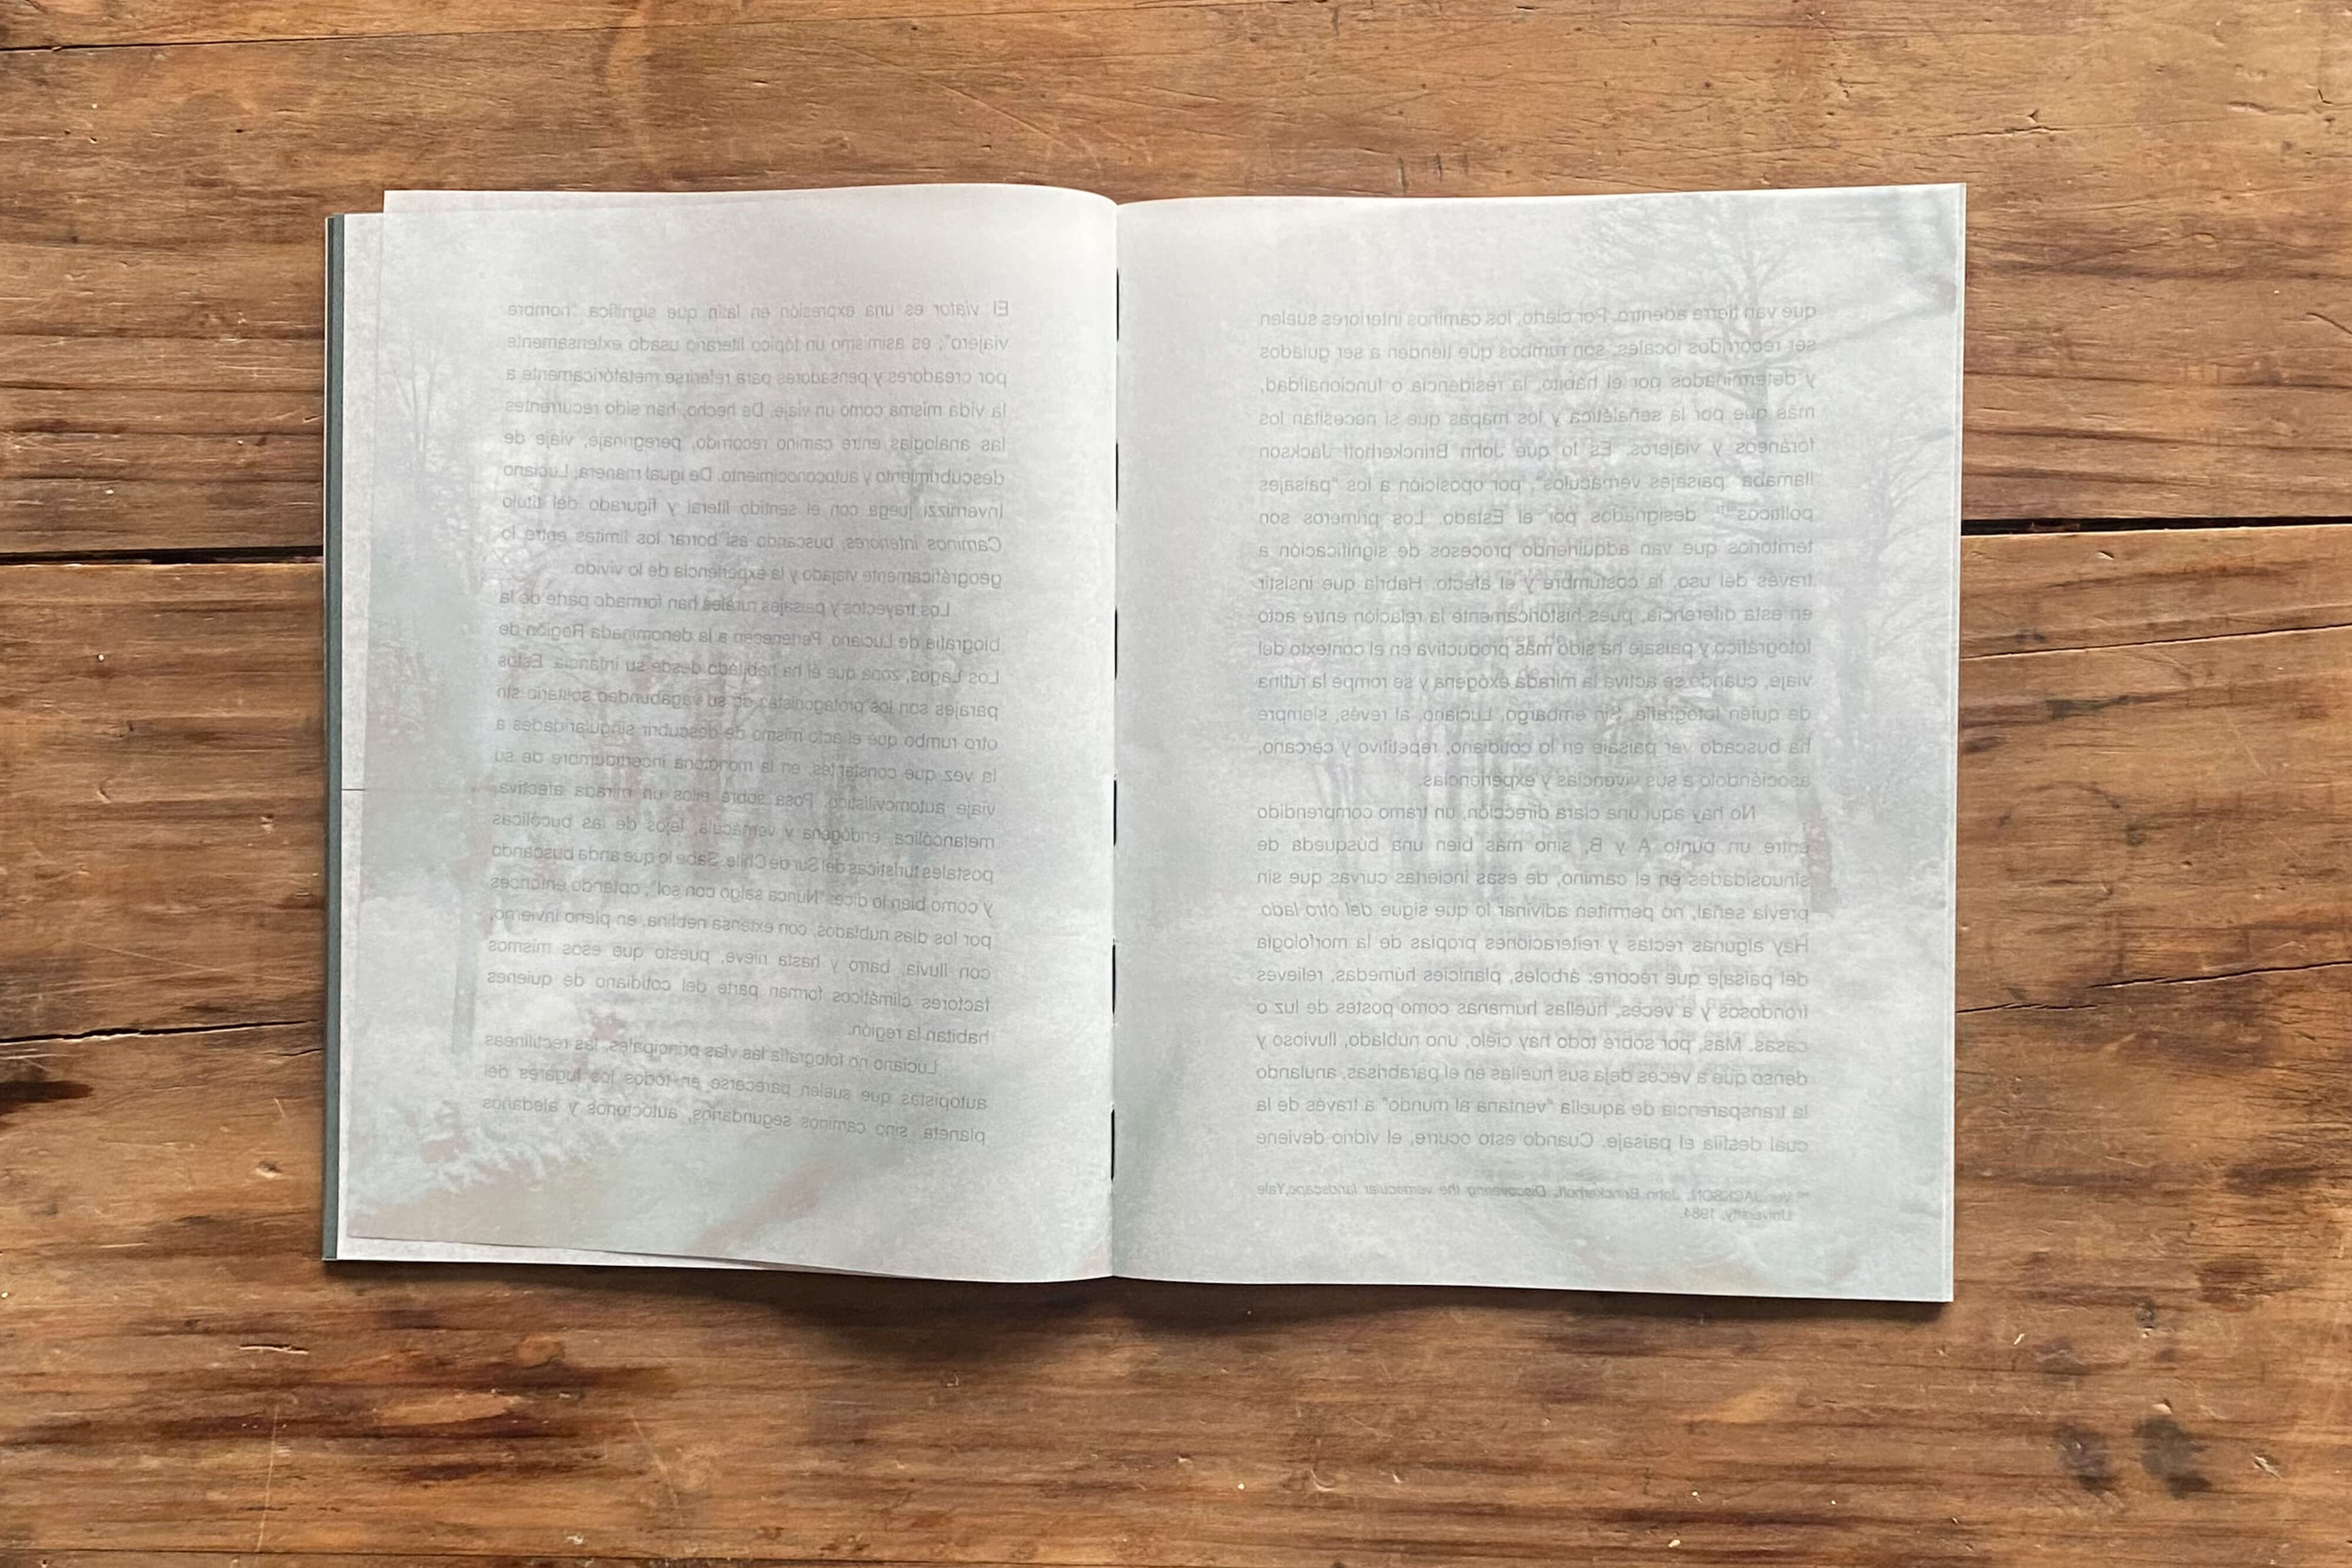 El viator es una expresión en latín que significa "hombre
viajero", es asimismo un tópico literario usado extensamente
por creadores y pensadores para referirse metafóricamente a
la vida misma como un viaje. De hecho, han sido recurrentes
las analogías entre camino recorrido, peregrinaje, viaje de
descubrimiento y autoconocimiento. De igual manera, Luciano
Invernizzi juega con el sentido literal y figurado del título
Caminos interiores, buscando así borrar los límites entre lo
geográficamente viajado y la experiencia de lo vivido.
Los trayectos y paisajes rurales han formado parte de la
biografía de Luciano. Pertenecen a la denominada Región de
Los Lagos, zona que él ha habitado desde su infancia. Estos
parajes son los protagonistas de su vagabundeo solitario sin
otro rumbo que el acto mismo de descubrir singularidades a
la vez que constantes, en la monótona incertidumbre de su
viaje automovilístico. Posa sobre ellos un mirada afectiva,
melancólica, endógena y vernácula, lejos de las bucólicas
postales turísticas del Sur de Chile. Sabe lo que anda buscando
y como bien lo dice: "Nunca salgo con sol", optando entonces
por los días nublados, con extensa neblina, en pleno invierno,
con lluvia, barro y hasta nieve, puesto que esos mismos
factores climáticos forman parte del cotidiano de quienes
habitan la región.
Luciano no fotografía las vías principales, las rectilíneas
autopistas que suelen parecerse en todos los lugares del
planeta, sino caminos segundarios, autóctonos y aledaños
que van tierra adentro. Por cierto, los caminos interiores suelen
ser recorridos locales, son rumbos que tienden a ser guiados
y determinados por el hábito, la residencia o funcionalidad,
más que por la señalética y los mapas que sí necesitan los
foráneos y viajeros. Es lo que John Brinckerhoff Jackson
llamaba "paisajes vernáculos", por oposición a los "paisajes
políticos" designados por el Estado. Los primeros son
territorios que van adquiriendo procesos de significación a
través del uso, la costumbre y el afecto. Habría que insistir
en esta diferencia, pues históricamente la relación entre acto
fotográfico y paisaje ha sido más productiva en el contexto del
viaje, cuando se activa la mirada exógena y se rompe la rutina
de quién fotografía. Sin embargo, Luciano, al revés, siempre
ha buscado ver paisaje en lo cotidiano, repetitivo y cercano,
asociándolo a sus vivencias y experiencias.
No hay aquí una clara dirección, un tramo comprendido
entre un punto A y B, sino más bien una búsqueda de
sinuosidades en el camino, de esas inciertas curvas que sin
previa señal, no permiten adivinar lo que sigue del otro lado.
Hay algunas rectas y reiteraciones propias de la morfología
del paisaje que recorre: árboles, planicies húmedas, relieves
frondosos y a veces, huellas humanas como postes de luz o
casas. Mas, por sobre todo hay cielo, uno nublado, lluvioso y
denso que a veces deja sus huellas en el parabrisas, anulando
la transparencia de aquella "ventana al mundo" a través de la
cual desfila el paisaje. Cuando esto ocurre, el vidrio deviene
Ver JACKSON, John Brinckerhoff, Discovering the vernacular landscape, Yale
University, 1984.